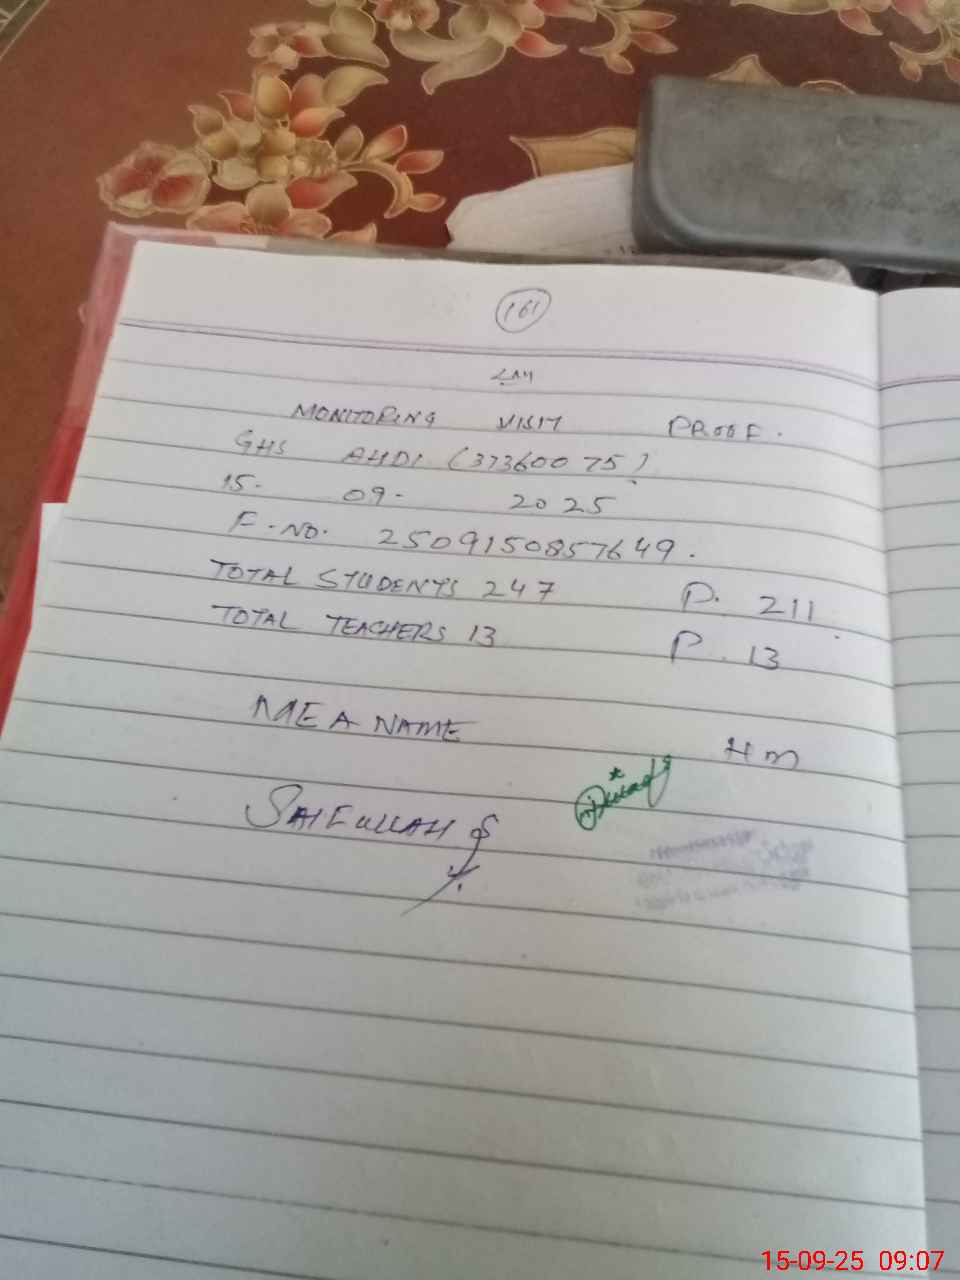 161
MONITORING VISIT PROOF.
GHS AHDI (37360075)
15- 09- 2025
F.NO. 2509150857649.
TOTAL STUDENTS 247 P. 211
TOTAL TEACHERS 13 P. 13
MEA NAME
HM
SAIFULLAH
15-09-25 09:07